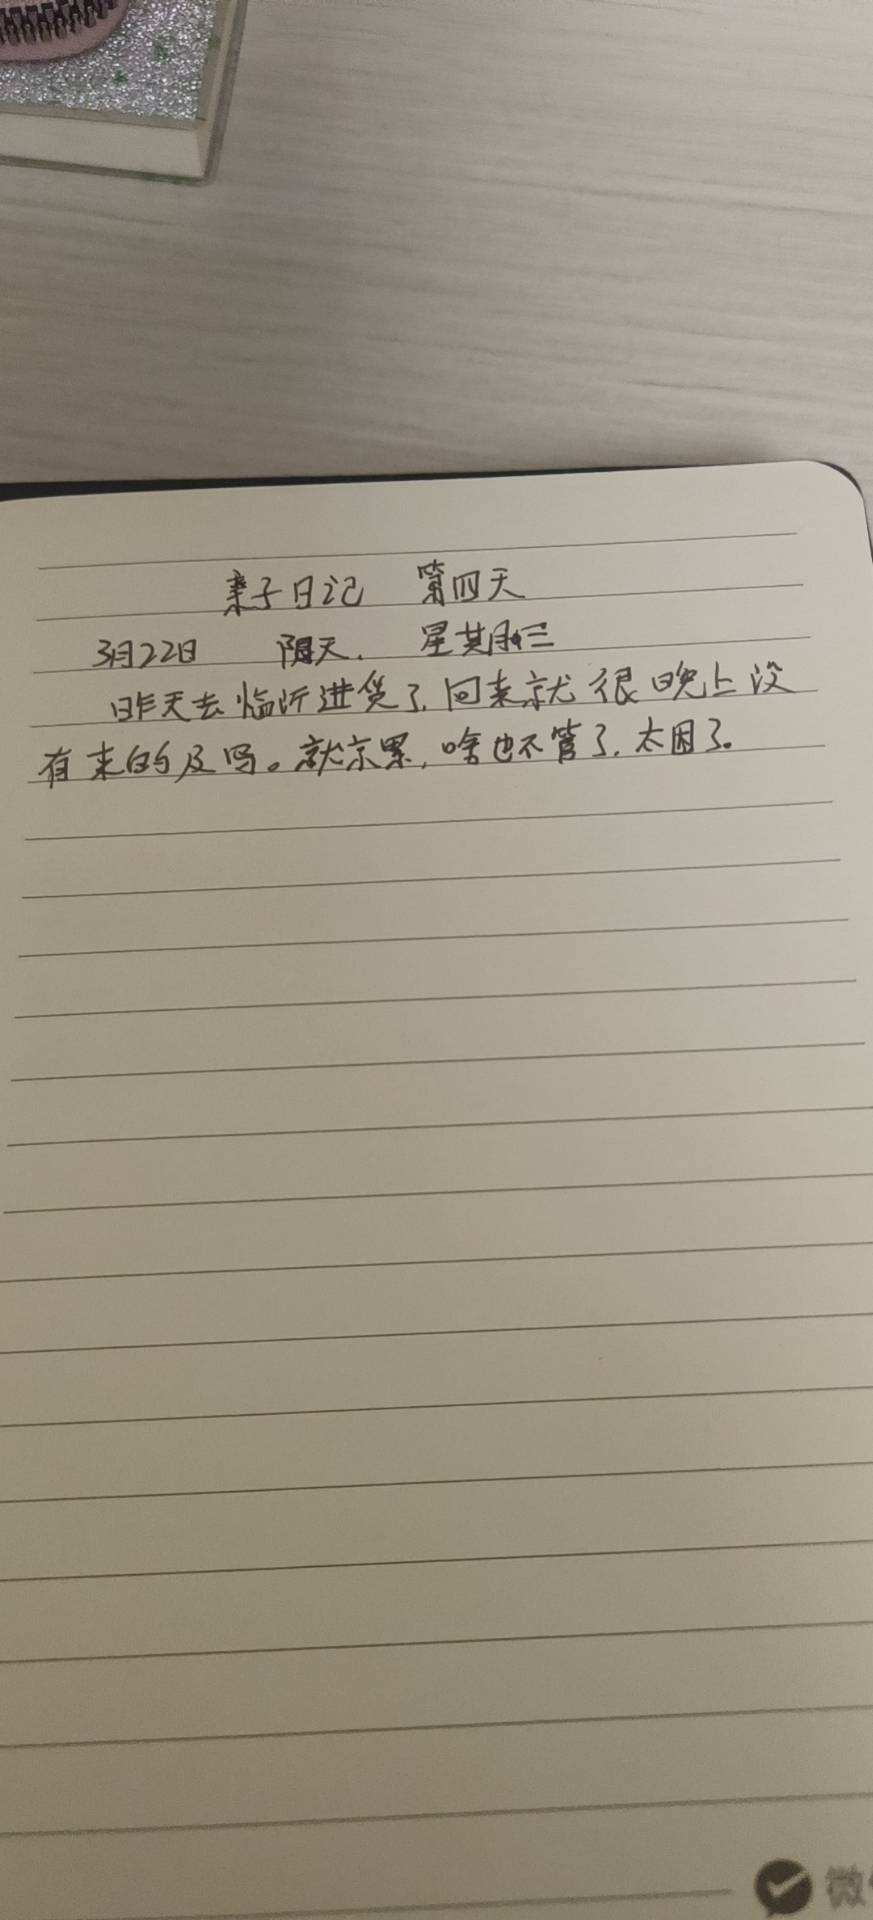 亲子日记 第四天
3月22日 阴天. 星期三
昨天去临沂进货了.回来就很晚上没
有来的及写。就京累,啥也不管了.太困了。
微